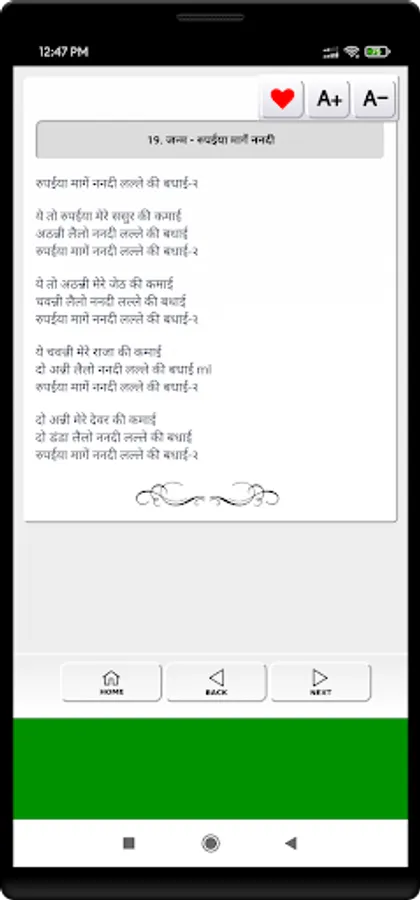 12:47 PM
A+ A-
19. जन्म - रुपईया मागें ननदी
रुपईया मागें ननदी लल्ले की बधाई-२
ये तो रुपईया मेरे ससुर की कमाई
अठन्नी लैलो ननदी लल्ले की बधाई
रुपईया मागें ननदी लल्ले की बधाई-२
ये तो अठन्नी मेरे जेठ की कमाई
चवन्नी लैलो ननदी लल्ले की बधाई
रुपईया मागें ननदी लल्ले की बधाई-२
ये चवन्नी मेरे राजा की कमाई
दो अन्नी लैलो ननदी लल्ले की बधाई ml
रुपईया मागें ननदी लल्ले की बधाई-२
दो अन्नी मेरे देवर की कमाई
दो डंडा लैलो ननदी लल्ले की बधाई
रुपईया मागें ननदी लल्ले की बधाई-२
HOME BACK NEXT